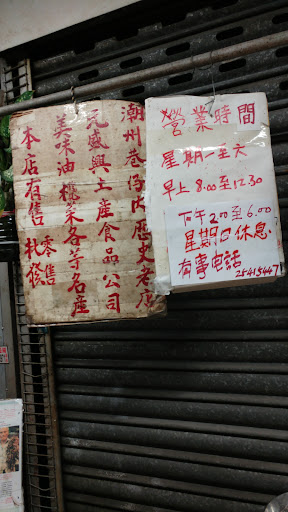 潮州巷仔内歷史老店
元盛興土產食品公司
美味油欖菜各等名產
本店有售
零售
批發
營業時間
星期一至六
早上 8.00至12.30
下午 2.00至6.00
星期日休息
有事电话
25415447